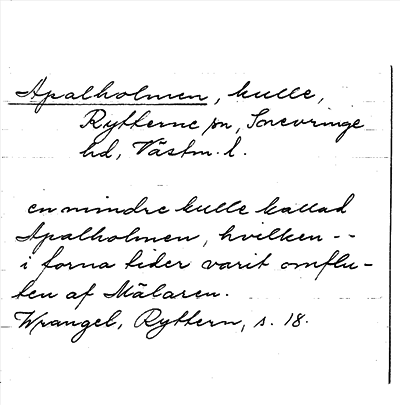 Apalholmen, kulle,
Rytterne sn, Snevringe
hd, Västm. l.
en mindre kulle kallad
Apalholmen, hvilken --
i forna tider varit omflu-
ten af Mälaren.
Wrangel, Ryttern, s. 18.